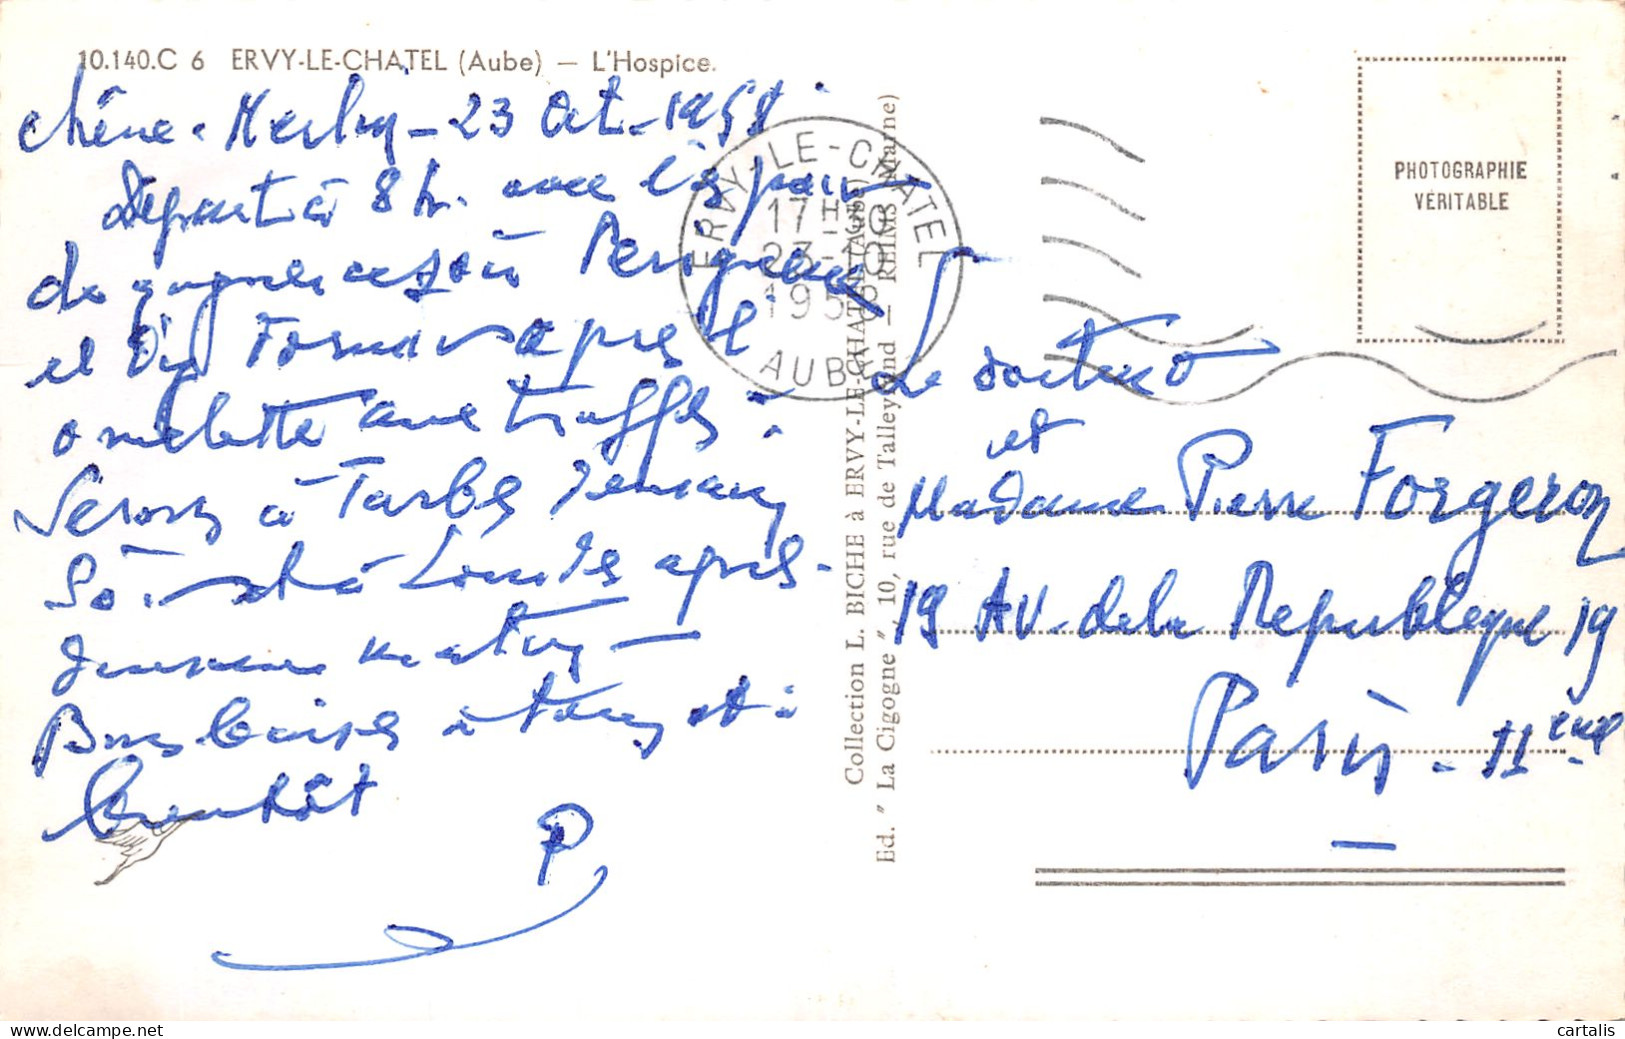 10.140.C 6 ERVY-LE-CHATEL (Aube) — L'Hospice.
23 Oct - 1958
Départ à 8 h. avec l'espoir
de gagner ce soir Perigueux
et après l'
omelette aux truffes.
Serons à Tarbes demain
soir et à Lourdes après-
demain matin —
Bons baisers à tous et à
bientôt
P
ERVY-LE-CHATEL
17 H
23-10
1958
AUBE
Collection L. BICHE à ERVY-LE-CHATEL (Aube)
Ed. "La Cigogne", 10, rue de Talleyrand — REIMS (Marne)
PHOTOGRAPHIE
VÉRITABLE
Le docteur
et
Madame Pierre Forgeron
19 Av. de la République 19
Paris - 11eme
cartalis